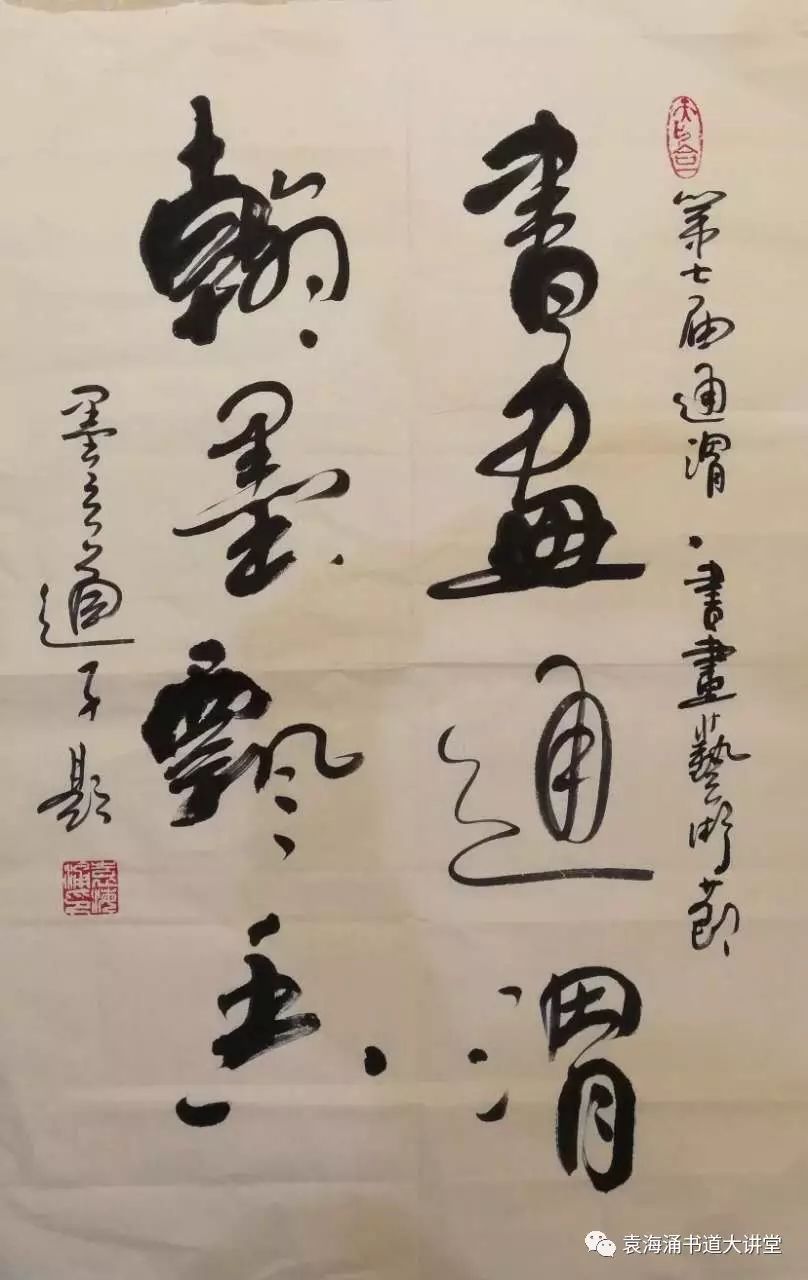 天人合一
第七屆通渭·書畫藝術節
書畫通渭
翰墨飄香
墨子題
袁海涌印
袁海涌书道大讲堂